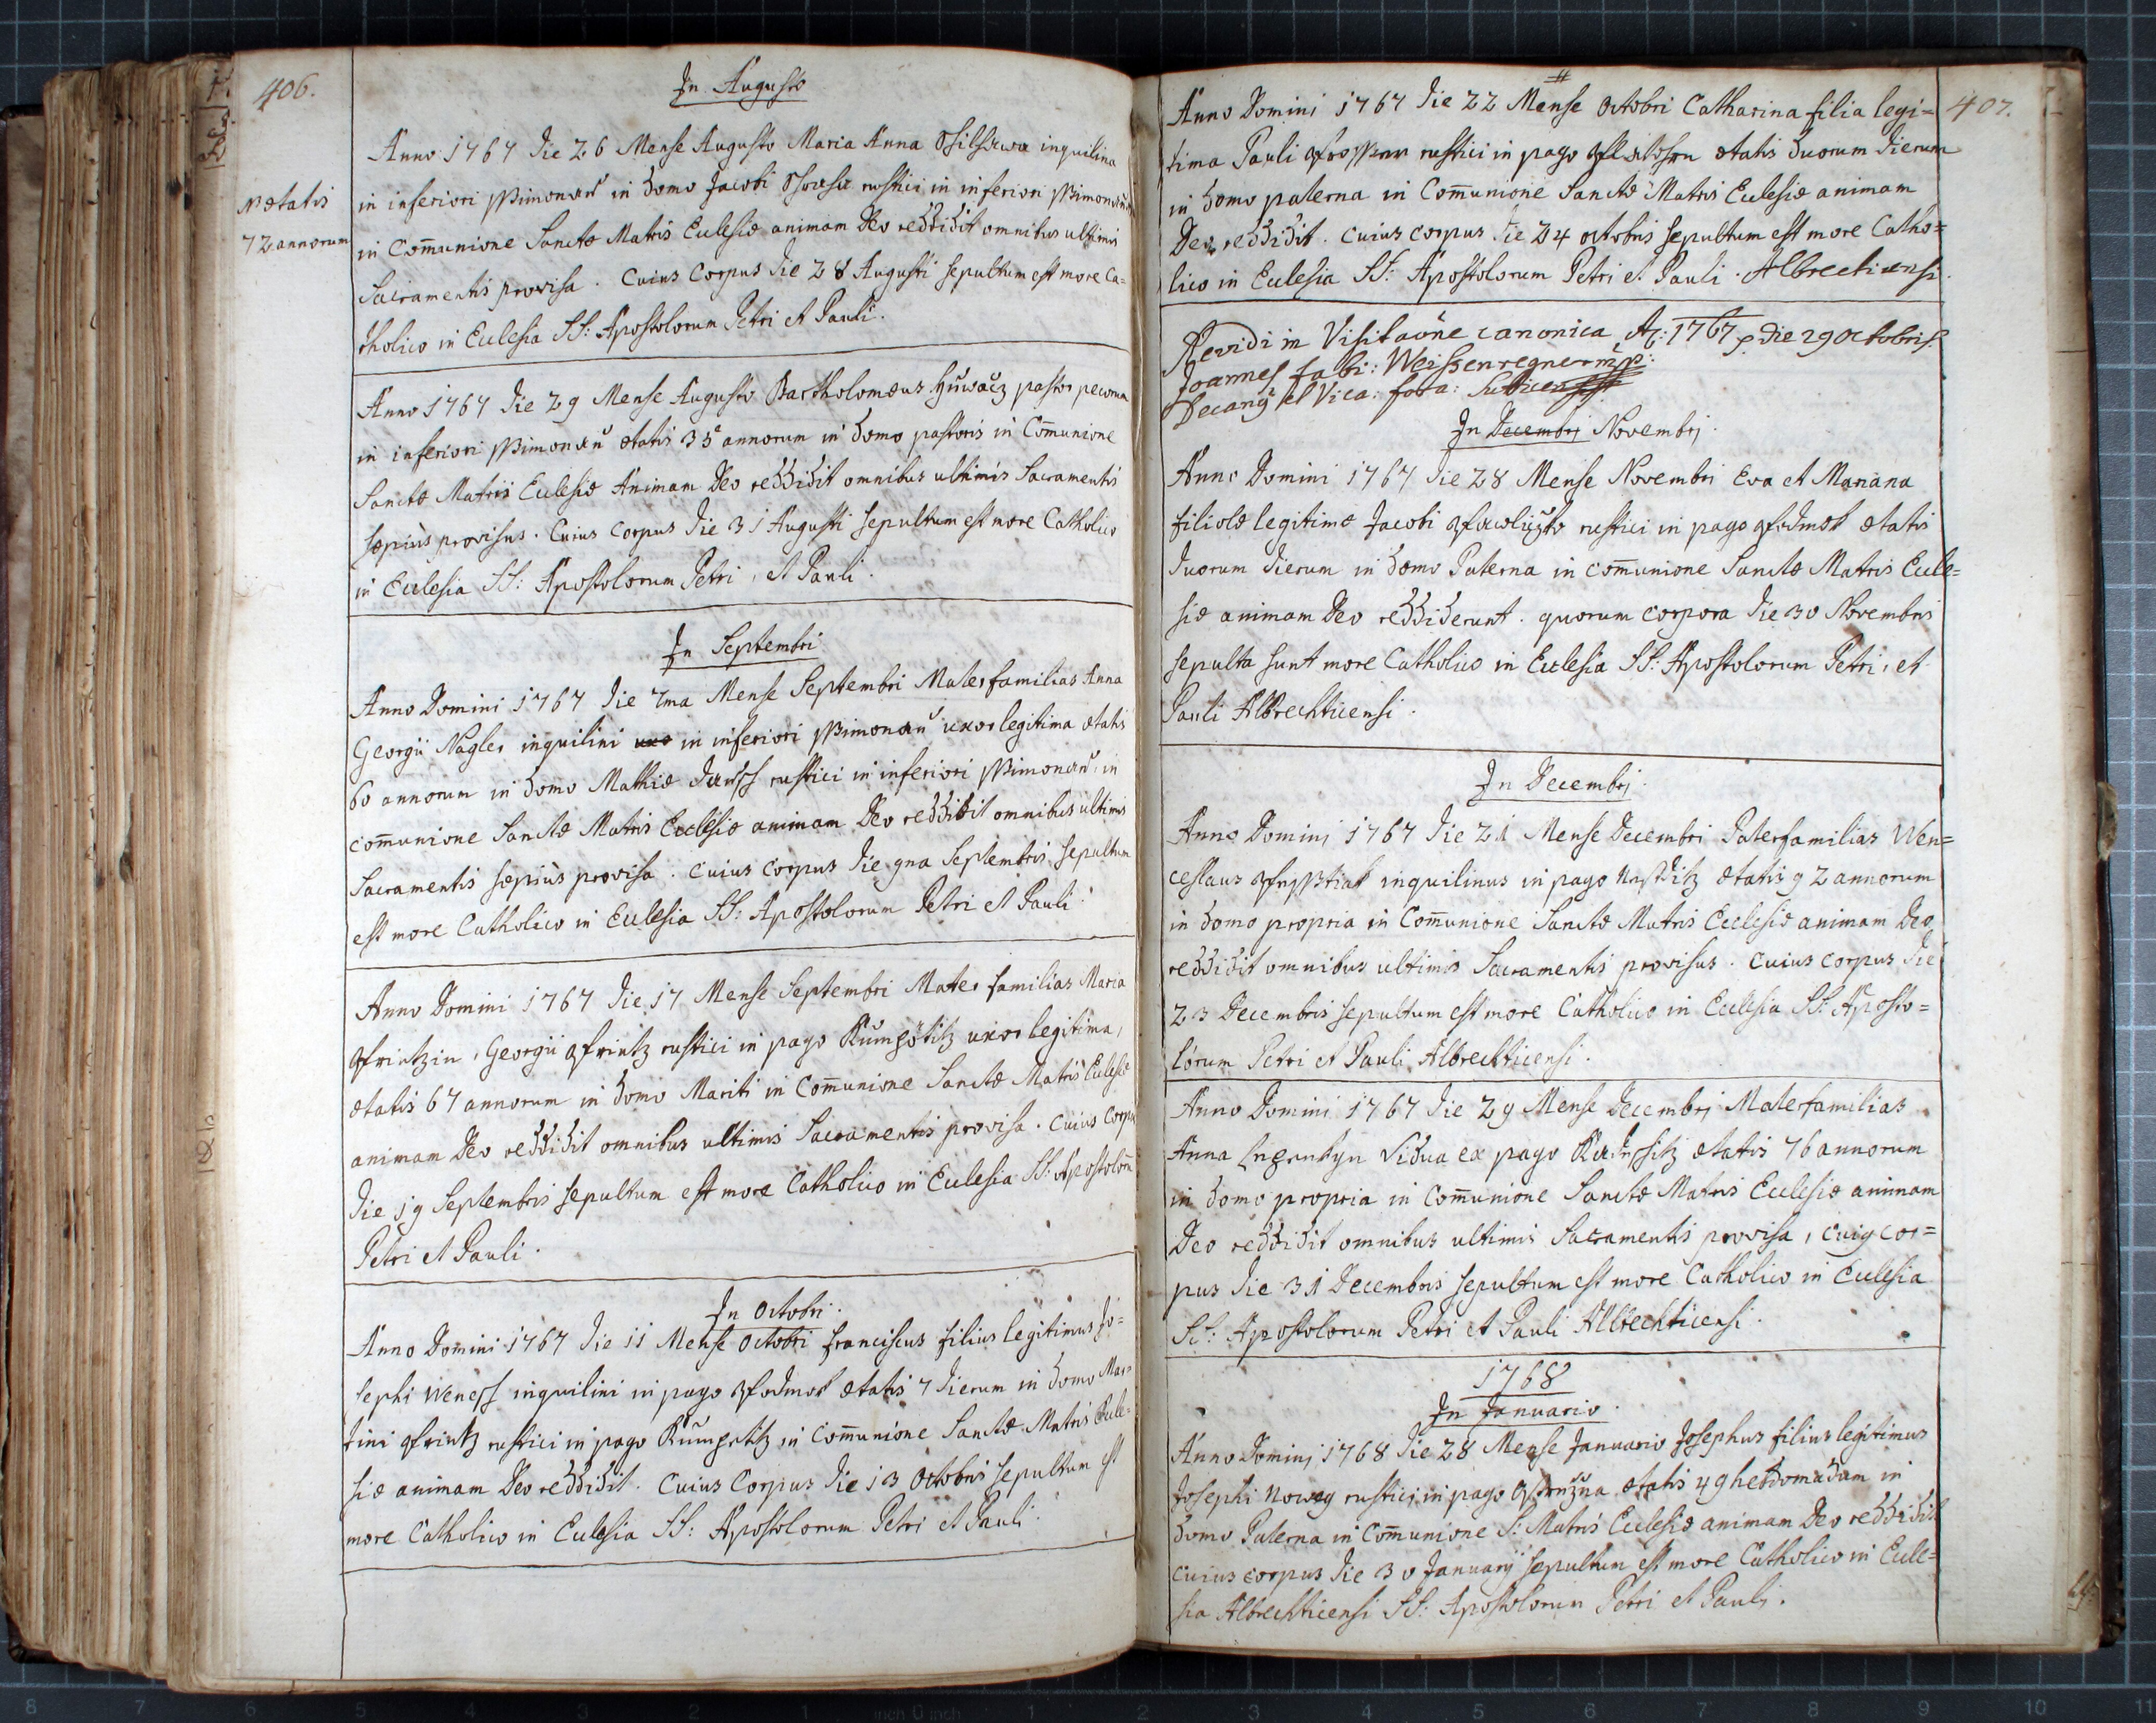 406.
In Augusto
Anno 1767 die 26 Mense Augusto Maria Anna inquilina
in inferiori in domo Jacobi rustici in inferiori
N ætatis
72 annorum
in Com̄unione Sanctæ Matris Ecclesiæ animam Deo reddidit omnibus ultimis
Sacramentis provisa. Cuius Corpus die 28 Augusti sepultum est more Ca=
tholico in Ecclesia SS: Apostolorum Petri et Pauli.
Anno 1767 die 29 Mense Augusto Bartholomæus pastor pecorum
in inferiori ætatis 35 annorum in domo pastoris in Com̄unione
Sanctæ Matris Ecclesiæ Animam Deo reddidit omnibus ultimis Sacramentis
sæpius provisus. Cuius Corpus die 31 Augusti sepultum est more Catholico
in Ecclesia SS: Apostolorum Petri, et Pauli.
In Septembri
Anno Domini 1767 die 7ma Mense Septembri Mater familias Anna
Georgii Nagler inquilini in inferiori uxor legitima ætatis
60 annorum in domo Mathiæ rustici in inferiori in
com̄unione Sanctæ Matris Ecclesiæ animam Deo reddidit omnibus ultimis
Sacramentis sæpiùs provisa. Cuius Corpus die 9na Septembris sepultum
est more Catholico in Ecclesia SS: Apostolorum Petri et Pauli.
Anno Domini 1767 die 17 Mense Septembri Mater familias Maria
Georgii rustici in pago uxor legitima,
ætatis 67 annorum in domo Mariti in Com̄unione Sanctæ Matris Ecclesiæ
animam Deo reddidit omnibus ultimis Sacramentis provisa. Cuius Corpus
die 19 Septembris sepultum est more Catholico in Ecclesia SS: Apostolorū
Petri et Pauli.
In Octobri.
Anno Domini 1767 die 11 Mense Octobri Franciscus filius legitimus Jo=
sephi inquilini in pago ætatis 7 dierum in domo Mar=
tini rustici in pago in Com̄unione Sanctæ Matris Eccle=
siæ animam Deo reddidit. Cuius Corpus die 13 Octobris sepultum est
more Catholico in Ecclesia SS: Apostolorum Petri et Pauli.
407.
Anno Domini 1767 die 22 Mense Octobri Catharina filia legi=
tima Pauli rustici in pago ætatis duorum dierum
in domo paterna in Com̄unione Sanctæ Matris Ecclesiæ animam
Deo reddidit. cuius corpus die 24 octobris sepultum est more Catho=
lico in Ecclesia SS: Apostolorum Petri et Pauli.
Revidi in Visitaōne canonica Aō: 1767 die 29 Octobris
Joannes
Decanus et Vica:
In Decembrj Novembrj.
Anno Domini 1767 die 28 Mense Novembri Eva et Mariana
filiolæ legitimæ Jacobi rustici in pago ætatis
duorum dierum in domo Paterna in com̄unione Sanctæ Matris Eccle=
siæ animam Deo reddiderunt. quorum corpora die 30 Novembris
sepulta sunt more Catholico in Ecclesia SS: Apostolorum Petri, et
Pauli Albrechticensi.
In Decembrj.
Anno Dominj 1767 die 21 Mense Decembri Paterfamilias Wen=
ceslaus inquilinus in pago ætatis 92 annorum
in domo propria in Com̄unione Sanctæ Matris Ecclesiæ animam Deo
reddidit omnibus ultimis Sacramentis provisus. cuius corpus die
23 Decembris sepultum est more Catholico in Ecclesia SS: Aposto=
lorum Petri et Pauli Albrechticensi.
Anno Domini 1767 die 29 Mense Decembrj Materfamilias
Anna Vidua ex pago ætatis 76 annorum
in domo propria in Com̄unione Sanctæ Matris Ecclesiæ animam
Deo reddidit omnibus ultimis Sacramentis provisa, cuius cor=
pus die 31 Decembris sepultum est more Catholico in Ecclesia
SS: Apostolorum Petri et Pauli Albrechticensi.
1768
In Januario.
Anno Dominj 1768 die 28 Mense Januario Josephus filius legitimus
Josephi rustici in pago ætatis 49 hebdomadum in
domo Paterna in Com̄unione S: Matris Ecclesiæ animam Deo reddidit
cuius corpus die 30 Januarij sepultum est more Catholico in Eccle=
sia Albrechticensi SS: Apostolorum Petri et Pauli.
8 7 6 5 4 3 2 1 inch 0 inch 1 2 3 4 5 6 7 8 9 10 11